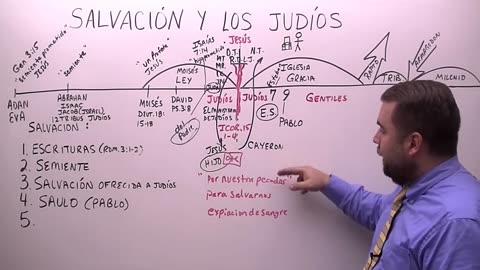 SALVACIÓN Y LOS JUDÍOS
Gen 3:15
"semiente prometido"
JESÚS
"semiente"
"un Profeta"
Jesús
Isaías
7:14
JESÚS
D.T.
N.T.
IGLESIA
GRACIA
RAPTO
TRIB
MILENIO
MOISÉS
LEY
ADAN
EVA
ABRAHAN
ISAAC
JACOB(ISRAEL)
12 TRIBUS JUDÍOS
MOISÉS
DEUT. 18:
15-18
DAVID
PS. 3:8
JUDÍOS
JUDÍOS
7
9
GENTILES
E.S.
PABLO
del Padre
1COR. 15:
1-4
JESÚS
HIJO
CAYERON
SALVACION:
1. ESCRITURAS (ROM. 3:1-2)
2. SEMIENTE
3. SALVACIÓN OFRECIDA A JUDÍOS
4. SAULO (PABLO)
5.
"por nuestro pecados"
para salvarnos
expiacion de sangre